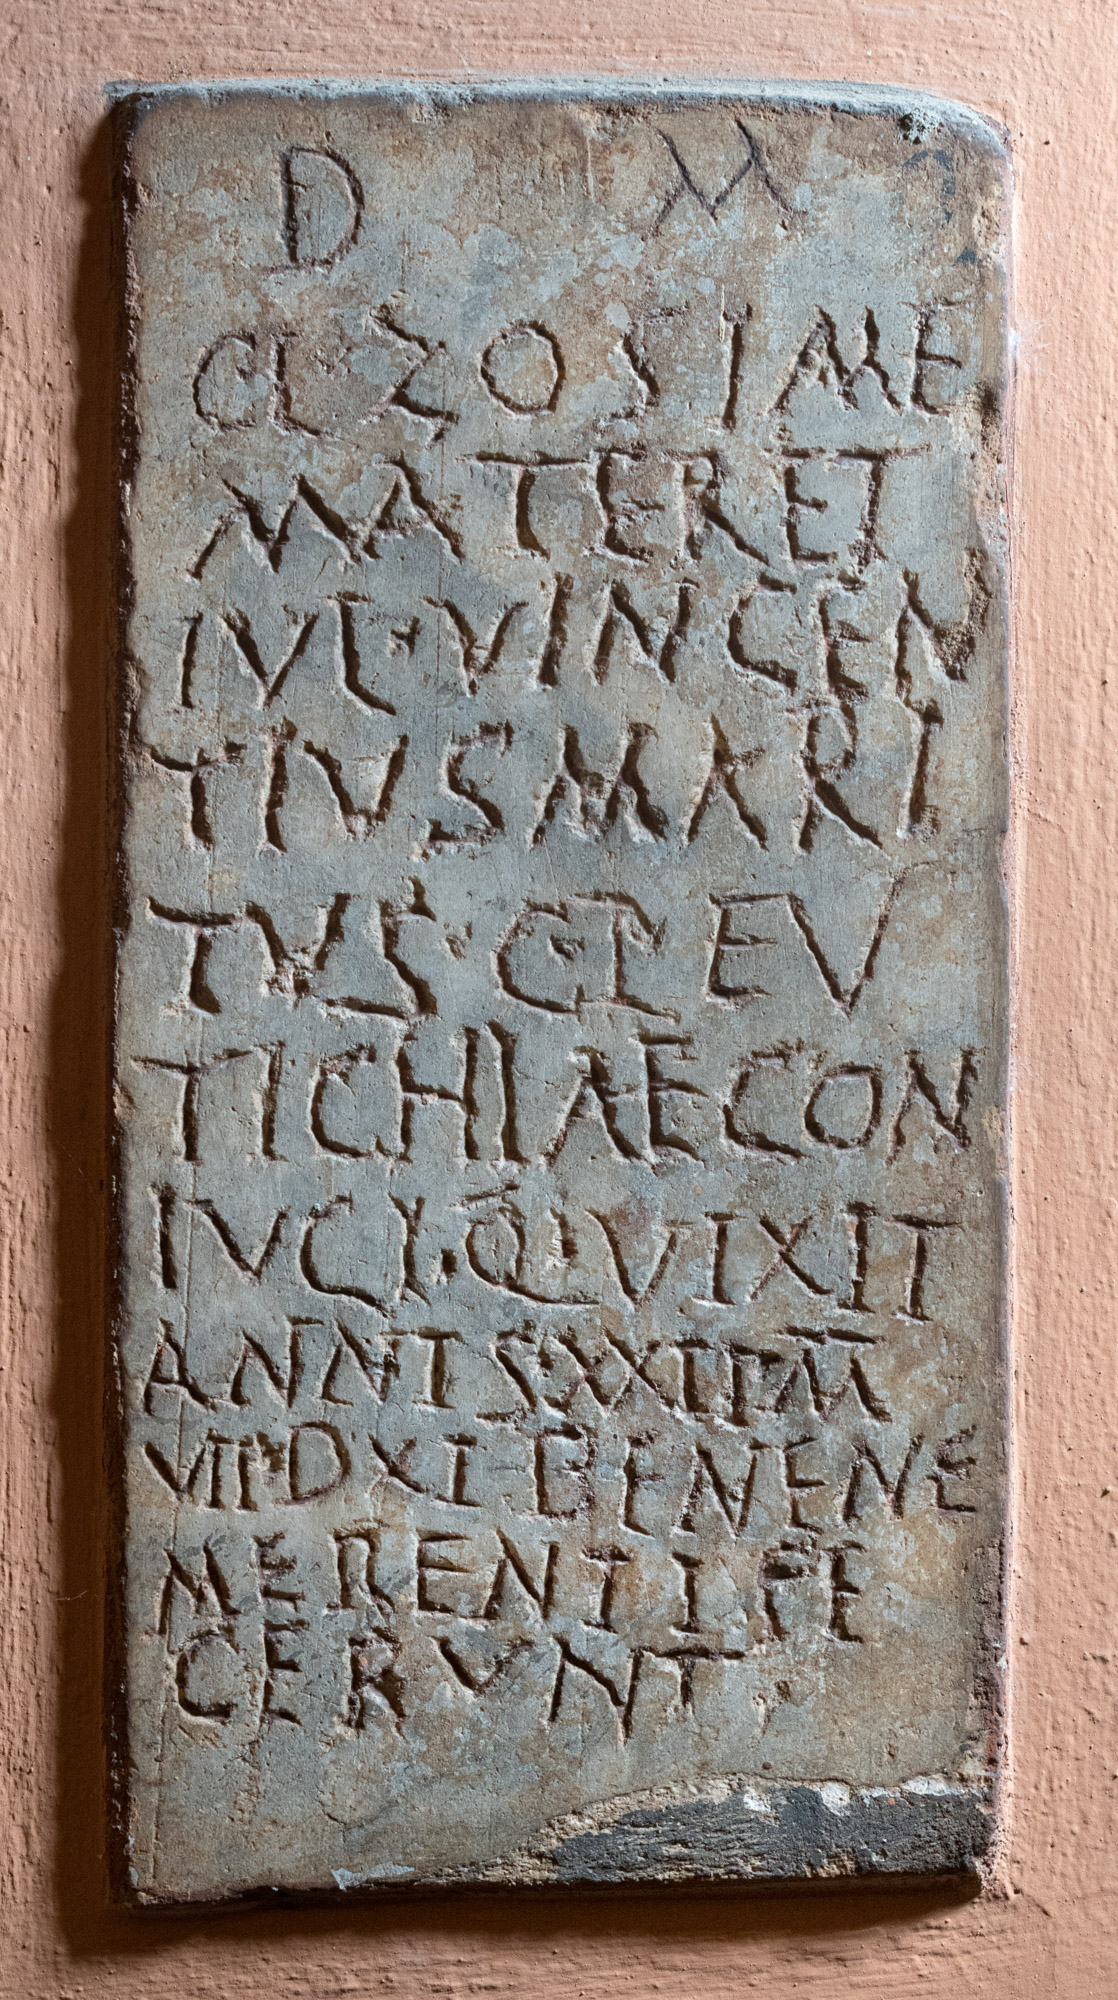 D M
CL ZOSIME
MATER ET
IVL·VINCEN
TIVS MARI
TVS·C·P EV
TICHIAE CON
IVCI·Q·VIXIT
ANNIS·XXIII M
VIII·D XI BENENE
MERENTI FE
CERVNT